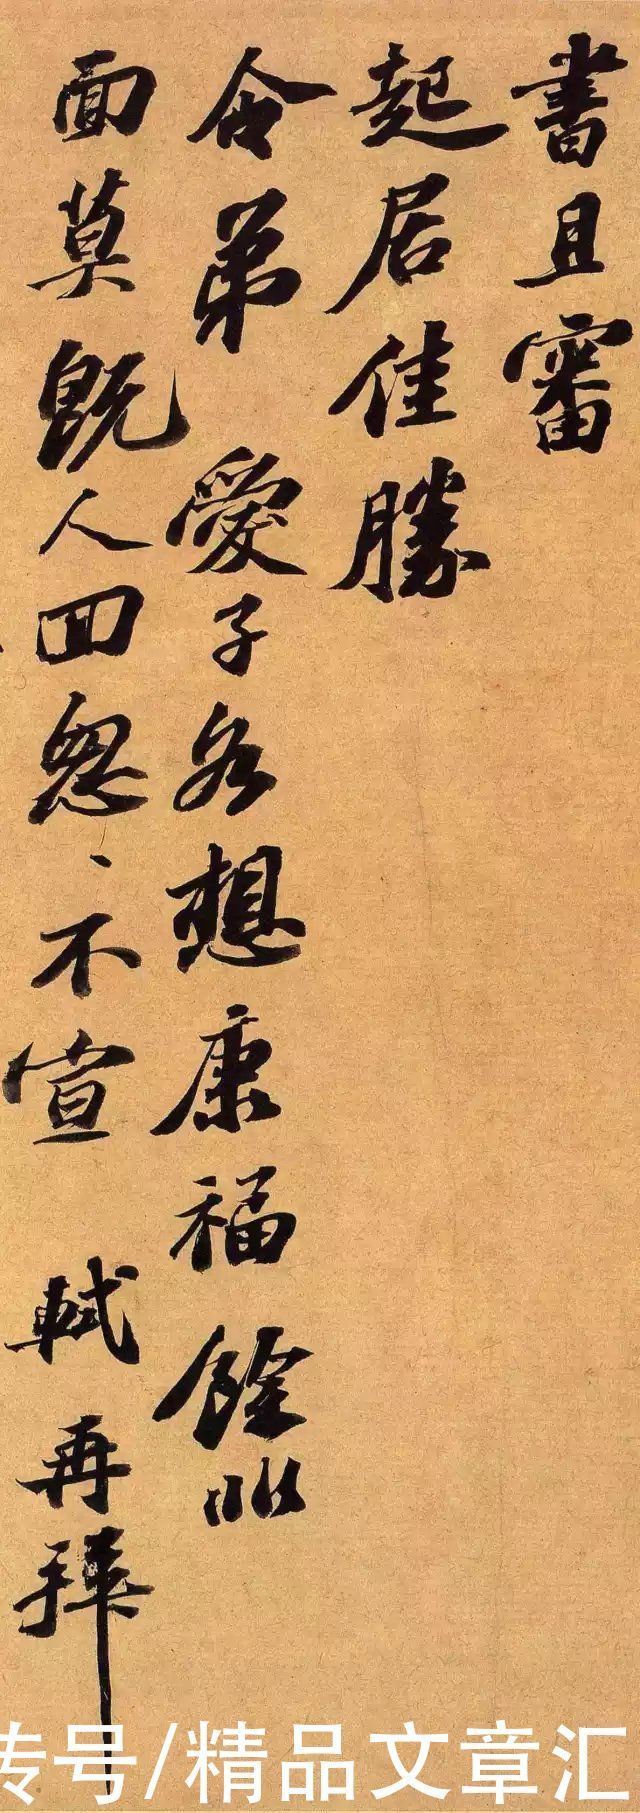 書且審
起居佳勝
令弟 愛子各想康福餘非
面莫既人回怱、不宣 軾再拜
号/精品文章汇